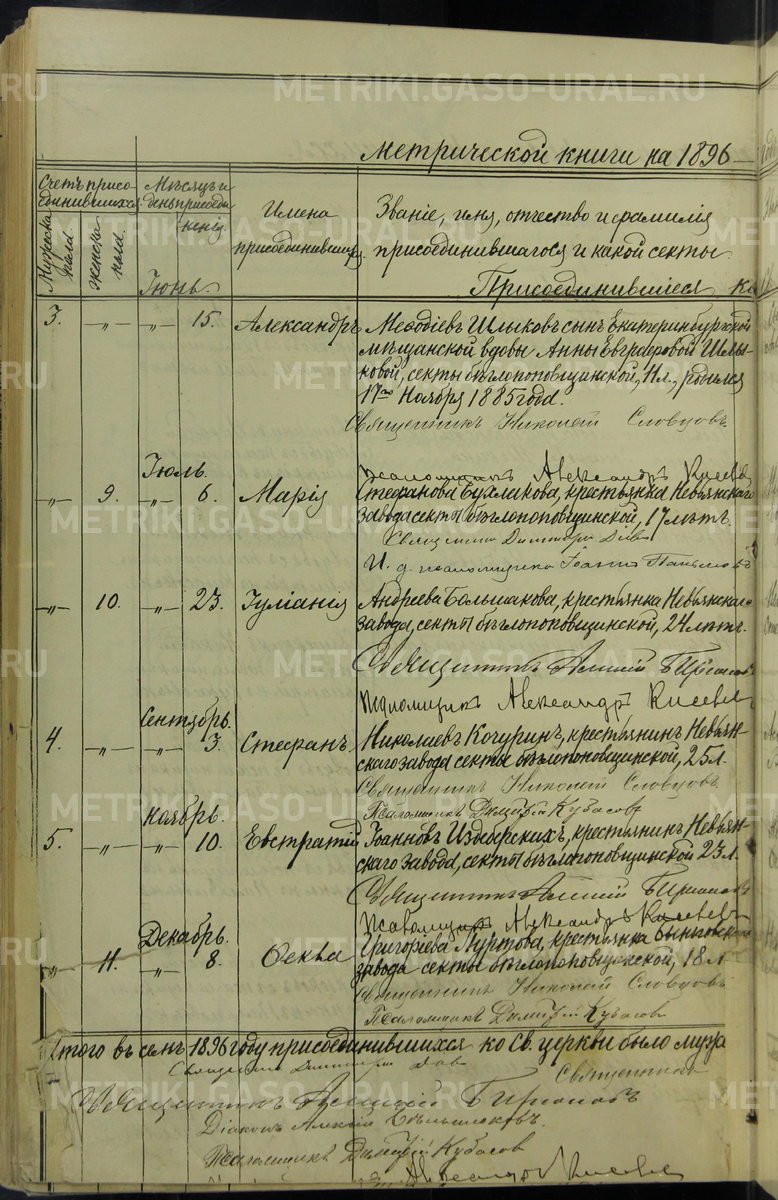 METRIKI.GASO-URAL.RU
Метрической книги на 1896
Счетъ присоединившихся
Мѣсяцъ и день присоединенія
Имена присоединившихся.
Званіе, имя, отчество и фамилія
присоединившагося и какой секты
Мужеска пола.
женска пола.
Присоединившіеся к
Іюнь.
3. -"- -"- 15. Александръ Меѳодіевъ Шлыковъ сынъ Екатеринбургской
мѣщанской вдовы Анны Евграфовой Шлы-
ковой, секты бѣглопоповщинской, 11 л., родился
17го Ноября 1885 года.
Священникъ Николай Словцовъ
Псаломщикъ Александръ Киселевъ
Іюль.
-"- 9. -"- 6. Марія Стефанова Бухлакова, крестьянка Невьянскаго
завода секты бѣглопоповщинской, 17 лѣтъ.
Священникъ Димитрій
И. д. псаломщика Іоаннъ
-"- 10. -"- 23. Іуліанія Андреева Большакова, крестьянка Невьянскаго
завода, секты бѣглопоповщинской, 24 лѣтъ.
Священникъ Алексій
Псаломщикъ Александръ Киселевъ
Сентябрь.
4. -"- -"- 3. Стефанъ Николаевъ Кочуринъ, крестьянинъ Невьян-
скаго завода секты бѣглопоповщинской, 25 л.
Священникъ Николай Словцовъ
Псаломщикъ Димитрій Кубасовъ
Ноябрь.
5. -"- -"- 10. Евстратій Іоанновъ крестьянинъ Невьян-
скаго завода, секты бѣглопоповщинской 23 л.
Священникъ Алексій
Псаломщикъ Александръ Киселевъ
Декабрь.
-"- 11. -"- 8. Ѳекла Григорьева Муртова, крестьянка
завода секты бѣглопоповщинской, 18 л
Священникъ Николай Словцовъ
Псаломщикъ Димитрій Кубасовъ
Итого въ семъ 1896 году присоединившихся ко Св. церкви было муж
Священникъ Димитрій
Священникъ
Священникъ Алексій
Діаконъ Алексій
Псаломщикъ Димитрій Кубасов
Александръ Киселевъ